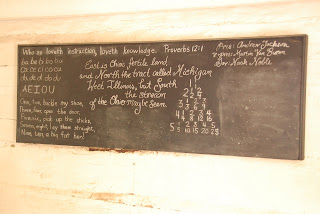 Who so loveth instruction, loveth knowledge. Proverbs 12:1
ba be bi bo bu
ca ce ci co cu
da de di do du
A E I O U
One, two, buckle my shoe,
Three, four, open the door,
Five, six, pick up the sticks,
Seven, eight, lay them straight,
Nine, ten, a big fat hen!
East is Ohio's fertile land
and North the tract called Michigan
West Illinois, but South
the stream
of the Ohio may be seen
Pres: Andrew Jackson
v. pres: Martin Van Buren
Gov: Noah Noble
1 2
2 2 4
1 2 3
3 3 6 9
1 2 3 4
4 4 8 12 16
1 2 3 4 5
5 5 10 15 20 25